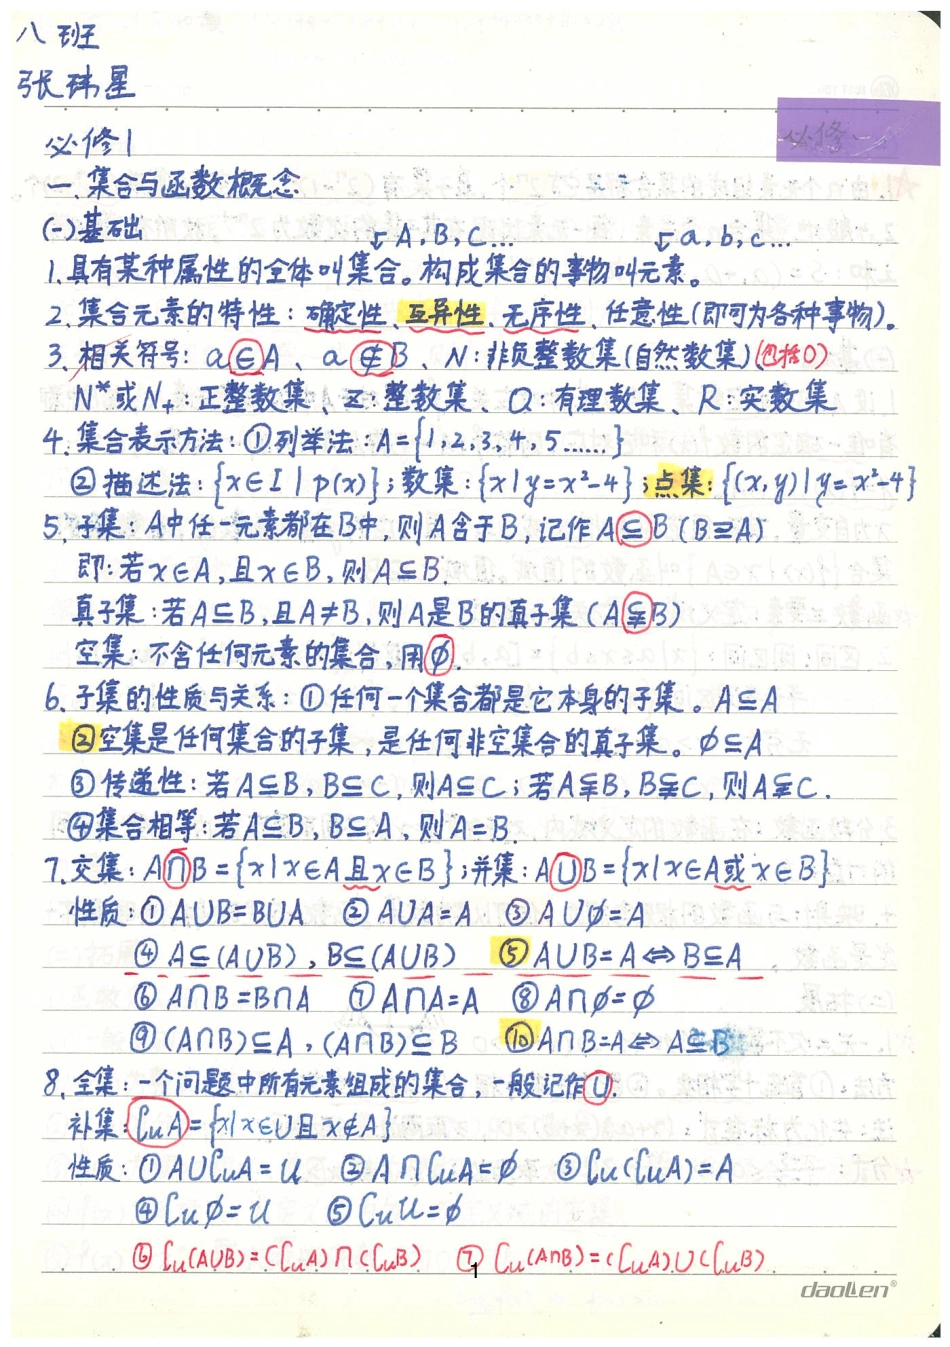 八班
张玮星
必修一
必修1
一、集合与函数概念
(一)基础
A,B,C… a,b,c…
1.具有某种属性的全体叫集合。构成集合的事物叫元素。
2、集合元素的特性:确定性、互异性、无序性、任意性(即可为各种事物)。
3、相关符号:a∈A、a∉B、N:非负整数集(自然数集)(包括0)
N*或N+:正整数集、Z:整数集、Q:有理数集、R:实数集
4、集合表示方法:①列举法:A={1,2,3,4,5……}
②描述法:{x∈I|p(x)};数集:{x|y=x²-4};点集:{(x,y)|y=x²-4}
5、子集:A中任一元素都在B中,则A含于B,记作A⊆B(B⊇A)
即:若x∈A,且x∈B,则A⊆B.
真子集:若A⊆B,且A≠B,则A是B的真子集(A⫋B)
空集:不含任何元素的集合,用∅.
6、子集的性质与关系:①任何一个集合都是它本身的子集。A⊆A
②空集是任何集合的子集,是任何非空集合的真子集。∅⊆A
③传递性:若A⊆B,B⊆C,则A⊆C;若A⫋B,B⫋C,则A⫋C.
④集合相等:若A⊆B,B⊆A,则A=B.
7、交集:A∩B={x|x∈A且x∈B};并集:A∪B={x|x∈A或x∈B}
性质:①A∪B=B∪A ②A∪A=A ③A∪∅=A
④A⊆(A∪B),B⊆(A∪B) ⑤A∪B=A⇔B⊆A
⑥A∩B=B∩A ⑦A∩A=A ⑧A∩∅=∅
⑨(A∩B)⊆A,(A∩B)⊆B ⑩A∩B=A⇔A⊆B
8、全集:一个问题中所有元素组成的集合,一般记作U.
补集:∁uA={x|x∈U且x∉A}
性质:①A∪∁uA=U ②A∩∁uA=∅ ③∁u(∁uA)=A
④∁u∅=U ⑤∁uU=∅
⑥∁u(A∪B)=(∁uA)∩(∁uB) ⑦∁u(A∩B)=(∁uA)∪(∁uB)
1
daolen®